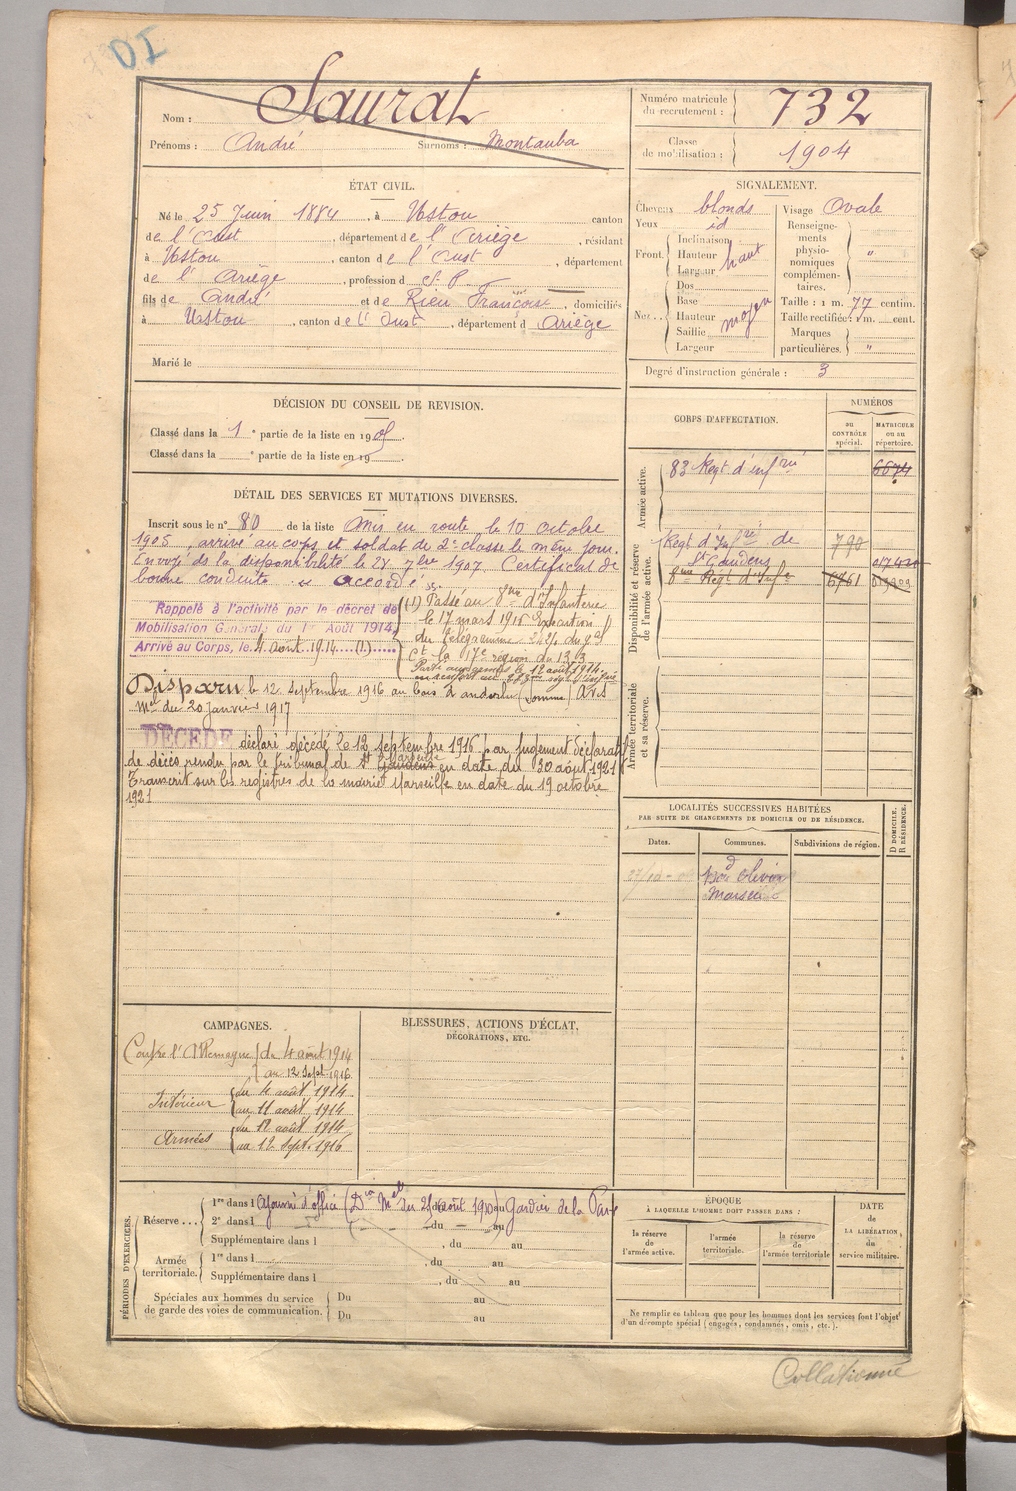 DI
Nom : Saurat
Prénoms : André Surnoms : Montauba
Numéro matricule du recrutement : 732
Classe de mobilisation : 1904
ÉTAT CIVIL.
Né le 25 Juin 1884, à Ustou canton
de l'Oust, département de l'Ariège, résidant
à Ustou, canton de l'Oust, département
de l'Ariège, profession d S. P.
fils de André et de Rieu Françoise, domiciliés
à Ustou, canton de l'Oust, département d Ariège
Marié le
SIGNALEMENT.
Cheveux blonds
Yeux id
Front. Inclinaison
Hauteur haut
Largeur
Nez. Dos
Base
Hauteur moyen
Saillie
Largeur
Visage Ovale
Renseignements physionomiques complémentaires. "
Taille : 1 m. 77 centim.
Taille rectifiée : 1 m. cent.
Marques particulières. "
Degré d'instruction générale : 3
DÉCISION DU CONSEIL DE REVISION.
Classé dans la 1e partie de la liste en 1905.
Classé dans la e partie de la liste en 19
DÉTAIL DES SERVICES ET MUTATIONS DIVERSES.
Inscrit sous le n° 80 de la liste Mis en route le 10 octobre
1905, arrivé au corps et soldat de 2e classe le même jour.
Envoyé ds la disponibilité le 28 7bre 1907. Certificat de
bonne conduite "accordé"
Rappelé à l'activité par le décret de
Mobilisation Générale du 1er Août 1914,
Arrivé au Corps, le 4 août 1914 (1)
(1) Passé au 8me d'Infanterie
le 17 mars 1916 Exécution
du télégramme du gal
Ct la 17e région du 13-3
Parti aux armées le 12 août 1914
en renfort au régt d'infrie
Disparu le 12 Septembre 1916 au bois d'anderlu (Somme) avis
Mel du 20 janvier 1917
DÉCÉDÉ déclaré décédé le 12 septembre 1916 par jugement déclaratif
de décès rendu par le tribunal de St Gaudens Marseille en date du 30 août 1921
Transcrit sur les registres de la mairie Marseille en date du 19 octobre
1921
CORPS D'AFFECTATION.
NUMÉROS
au CONTRÔLE spécial.
MATRICULE ou au répertoire.
Armée active.
83 Régt d'infrie 6674
Disponibilité et réserve de l'armée active.
Régt d'Infrie de St Gaudens 790
8me Régt d'Infie 6761
Armée territoriale et sa réserve.
LOCALITÉS SUCCESSIVES HABITÉES
PAR SUITE DE CHANGEMENTS DE DOMICILE OU DE RÉSIDENCE.
Dates. Communes. Subdivisions de région. D DOMICILE. R RÉSIDENCE.
Marseille
CAMPAGNES.
Contre l'Allemagne du 4 août 1914
au 12 Sept 1916
Intérieur du 4 août 1914
au 11 août 1914
Armées du 12 août 1914
au 12 Sept. 1916
BLESSURES, ACTIONS D'ÉCLAT,
DÉCORATIONS, ETC.
PÉRIODES D'EXERCICES.
Réserve... 1re dans l Ajourné d'office (Don Mel du 21 août 1910) Gardien de la Paix
2e dans l , du au
Supplémentaire dans l , du au
Armée territoriale. 1re dans l , du au
Supplémentaire dans l , du au
Spéciales aux hommes du service
de garde des voies de communication.
Du au
Du au
ÉPOQUE
À LAQUELLE L'HOMME DOIT PASSER DANS :
la réserve de l'armée active.
l'armée territoriale.
la réserve de l'armée territoriale
DATE de LA LIBÉRATION du service militaire.
Ne remplir ce tableau que pour les hommes dont les services font l'objet
d'un décompte spécial (engagés, condamnés, omis, etc.).
Collationné